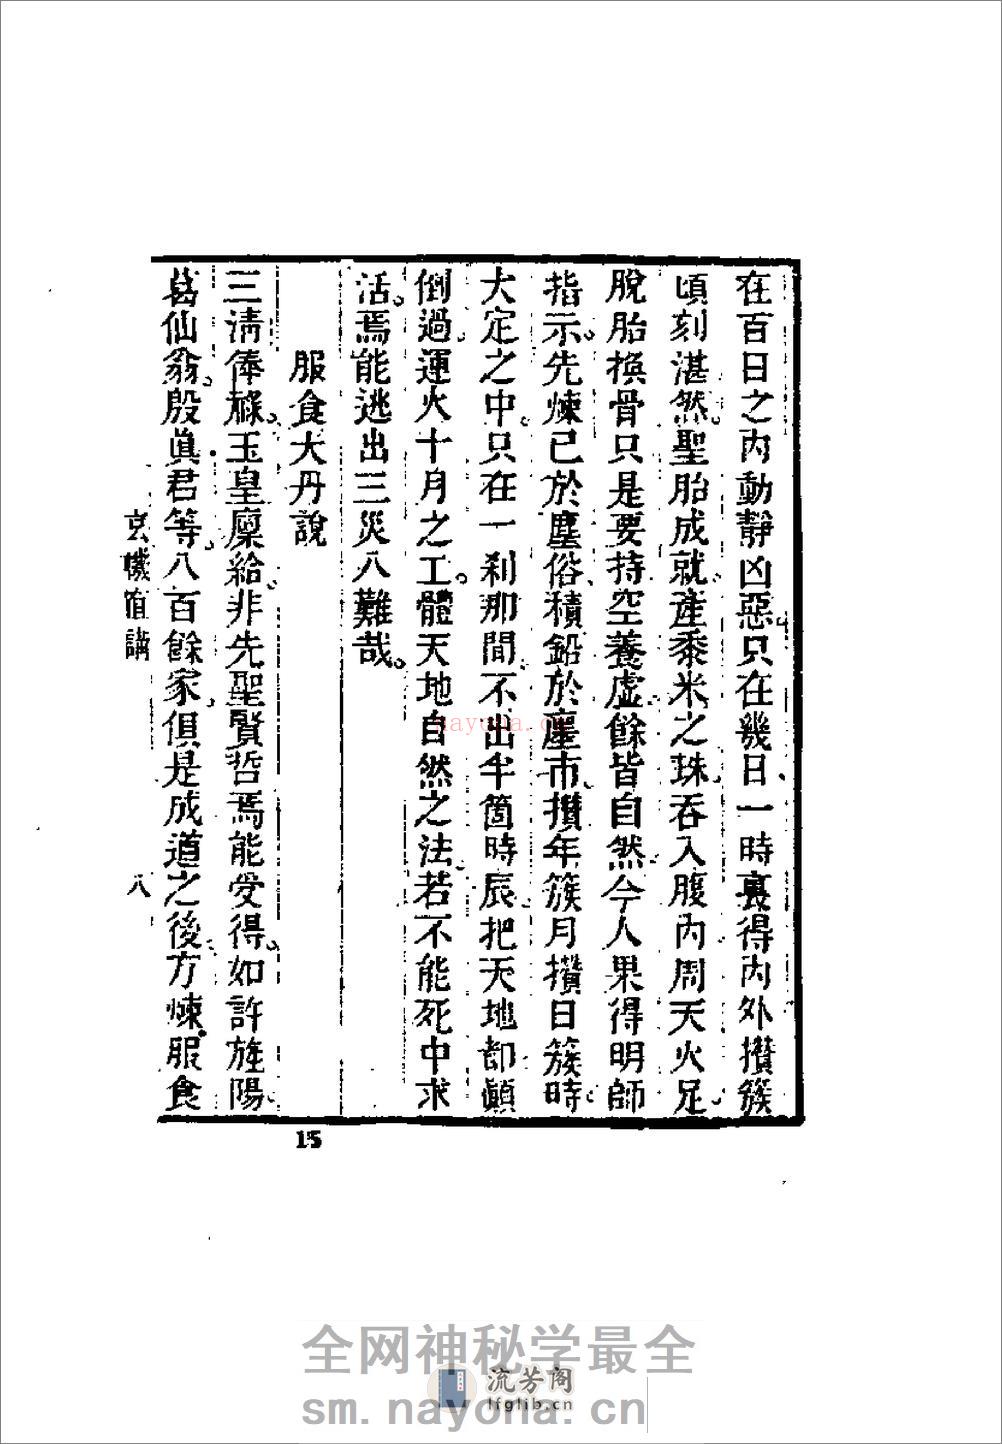 在百日之內動靜凶惡只在幾日一時裏得內外攢簇
頃刻湛然。聖胎成就。產黍米之珠。吞入腹內。周天火足。
脫胎換骨。只是要持空養虛。餘皆自然。今人果得明師
指示。先煉已於塵俗。積鉛於廛市。攢年簇月。攢日簇時。
大定之中。只在一剎那間。不出半箇時辰。把天地都顛
倒過。運火十月之工。體天地自然之法。若不能死中求
活。焉能逃出三災八難哉。
服食大丹說
三清俸祿。玉皇廩給。非先聖賢哲焉能受得。如許旌陽
葛仙翁。殷眞君等。八百餘家。俱是成道之後。方煉服食
玄機直講
八
15
nayona.cn
全网神秘学最全
流芳阁
lfglib.cn
sm.nayona.cn